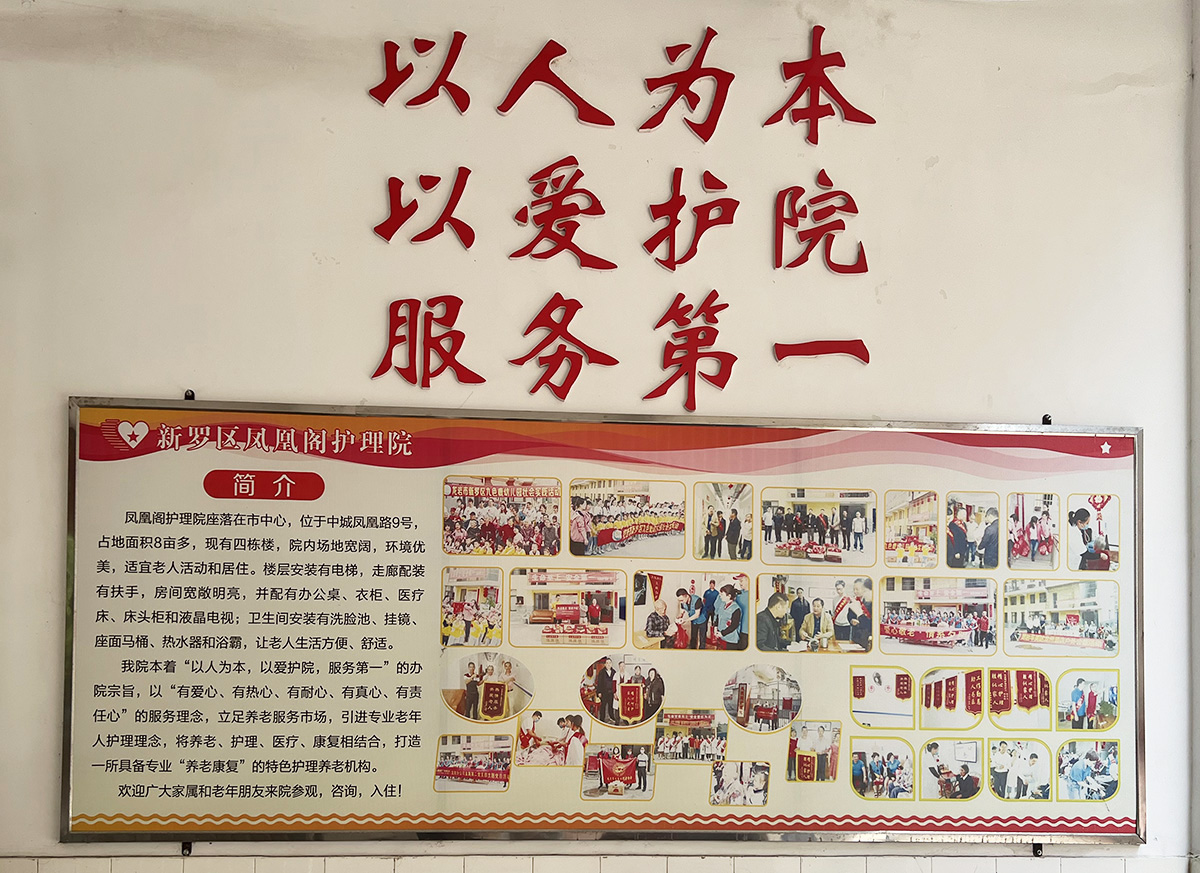 以人为本
以爱护院
服务第一
新罗区凤凰阁护理院
简介
凤凰阁护理院座落在市中心，位于中城凤凰路9号，
占地面积8亩多，现有四栋楼，院内场地宽阔，环境优
美，适宜老人活动和居住。楼层安装有电梯，走廊配装
有扶手，房间宽敞明亮，并配有办公桌、衣柜、医疗
床、床头柜和液晶电视；卫生间安装有洗脸池、挂镜、
座面马桶、热水器和浴霸，让老人生活方便、舒适。
我院本着“以人为本，以爱护院，服务第一”的办
院宗旨，以“有爱心、有热心、有耐心、有真心、有责
任心”的服务理念，立足养老服务市场，引进专业老年
人护理理念，将养老、护理、医疗、康复相结合，打造
一所具备专业“养老康复”的特色护理养老机构。
欢迎广大家属和老年朋友来院参观，咨询，入住！
龙岩市新罗区九色鹿幼儿园社会实践活动